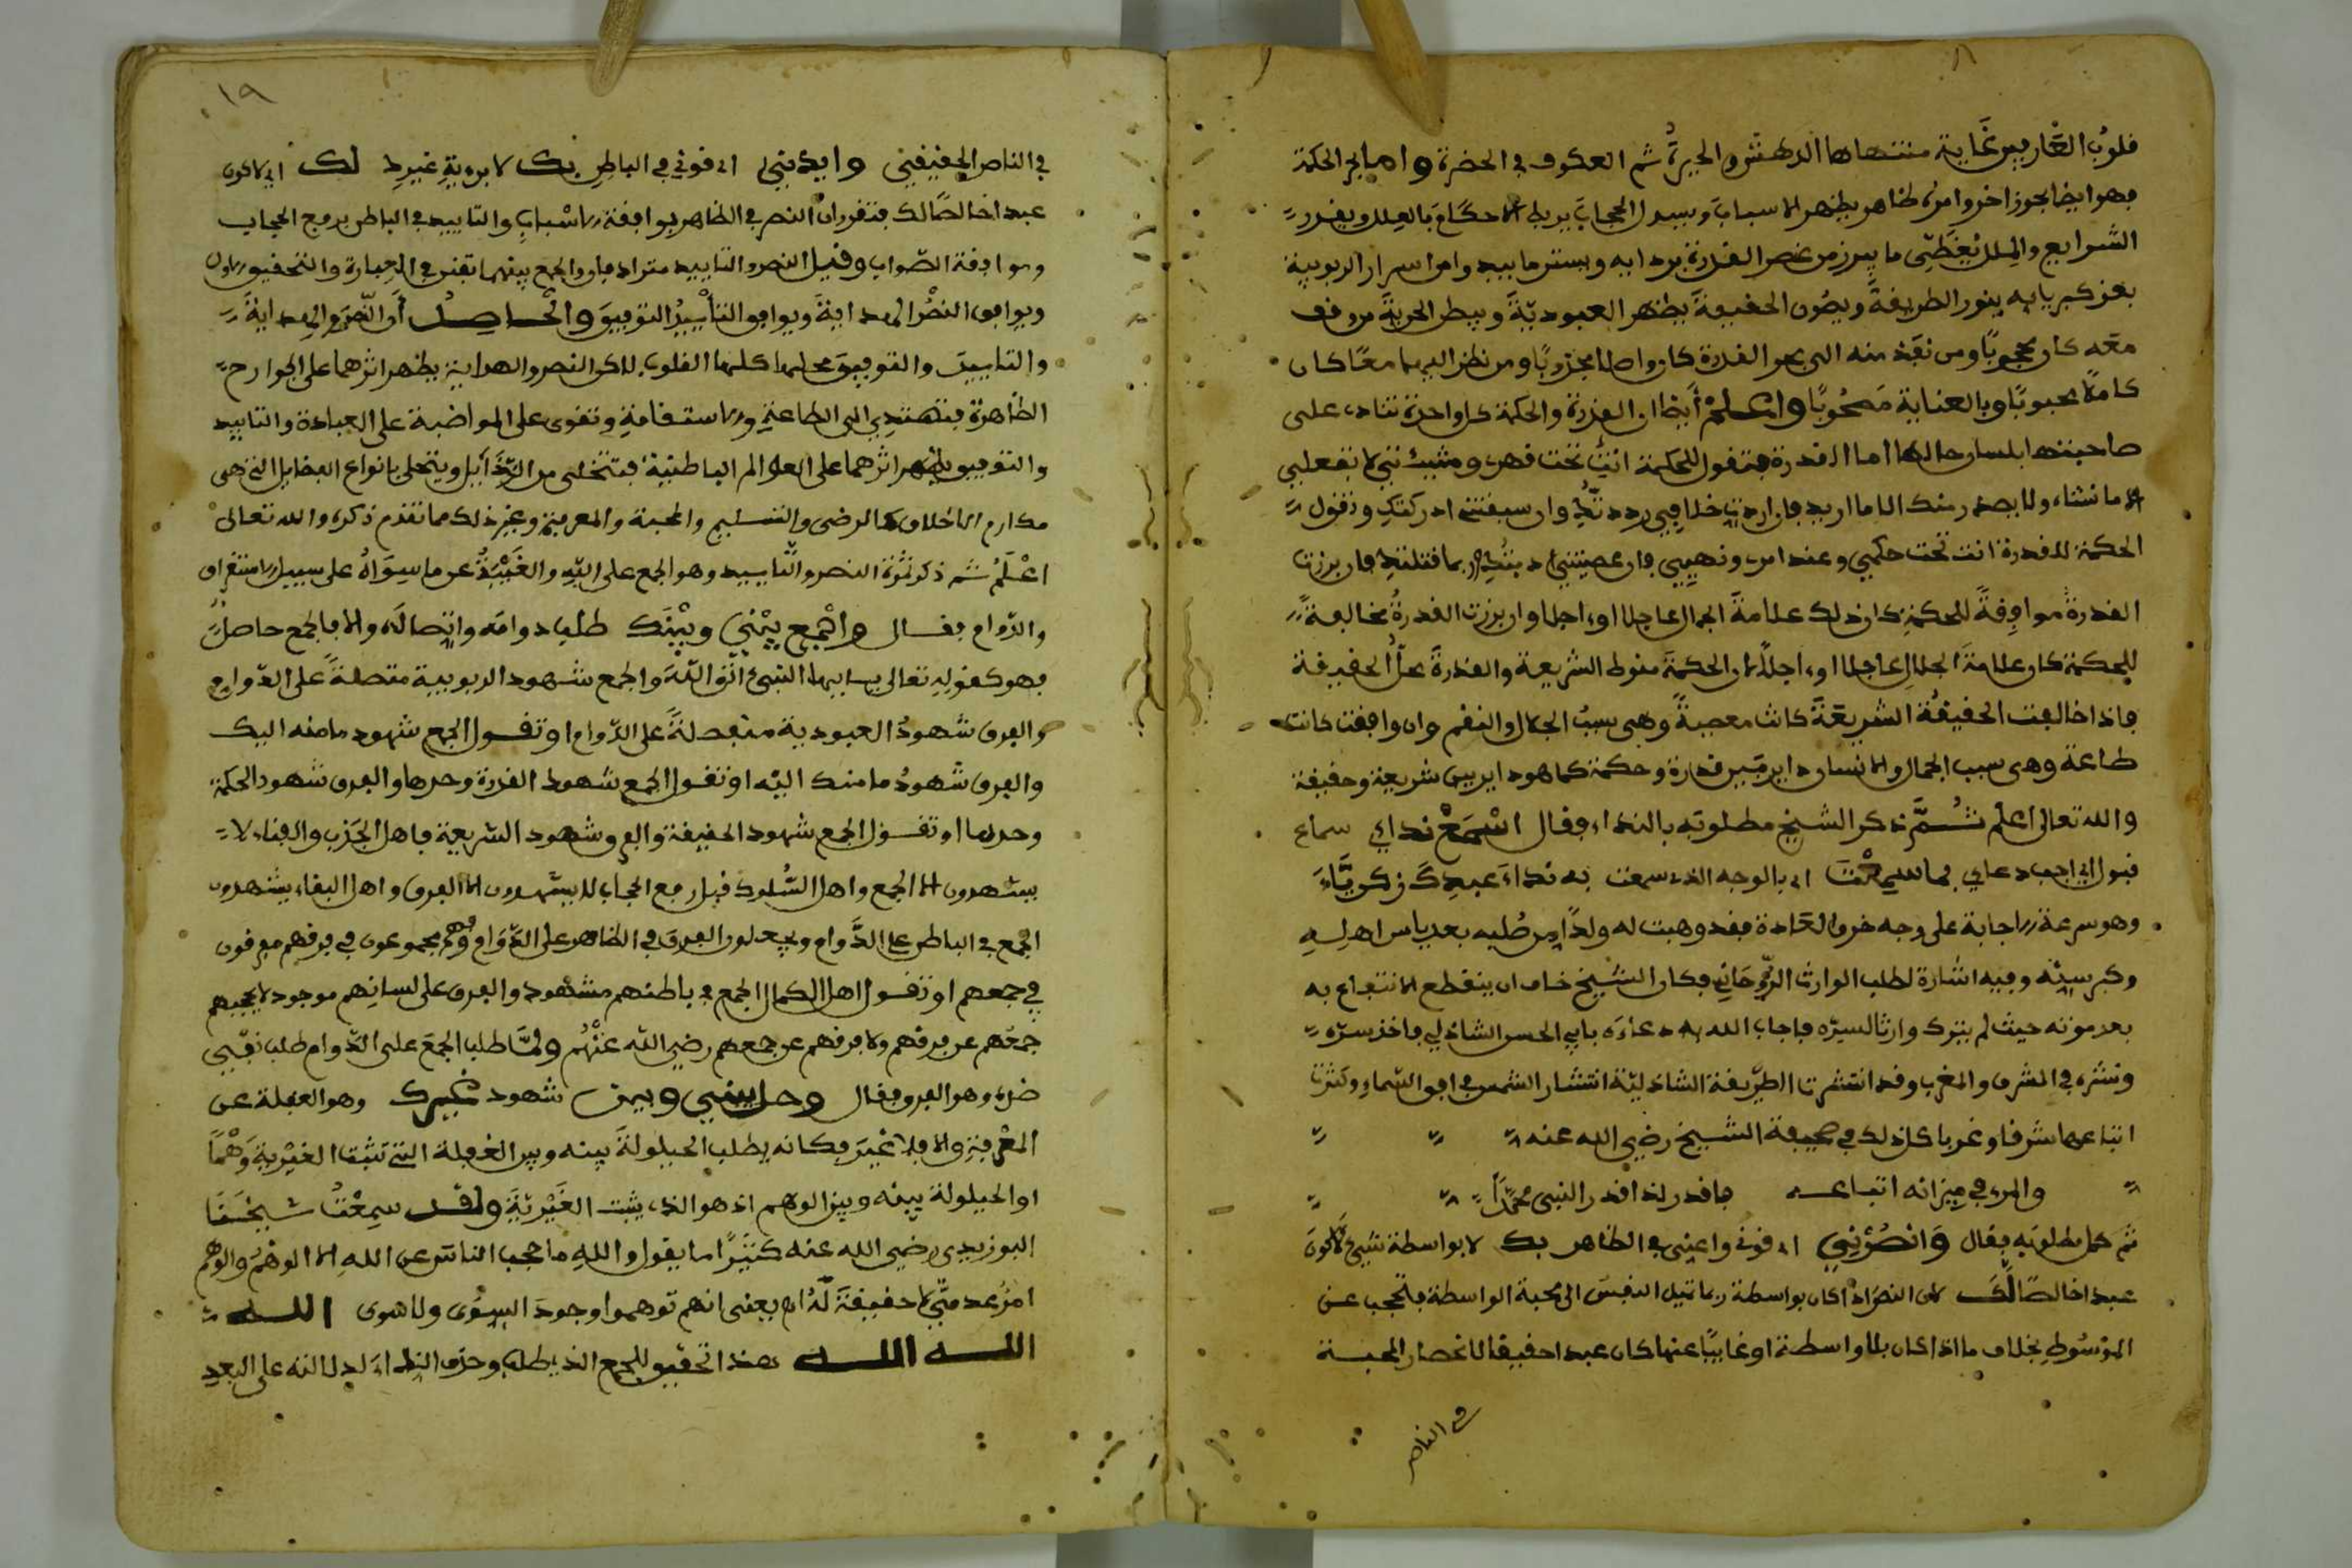 قلوب العارفين غاية منتهاها الدهش والحيرة ثم العكوف في الحضرة واما بحر الحكمة
فهو ايضا بحر زاخر وامره ظاهر يظهر الاسباب ويسدل الحجاب يربط الاحكام بالعلل ويقرر
الشرايع والملل يغطي ما يبرز من عنصر القدرة بردايه ويستر ما يبدو من اسرار الربوبية
بعز كبريايه ينور الطريقة ويصون الحقيقة يظهر العبودية ويبطن الحرية من وقف
معه كان محجوبا ومن نفذ منه الى بحر القدرة كان واصلا مجذوبا ومن نظر اليهما معا كان
كاملا محبوبا وبالعناية مصحوبا واعلم ايضا ان القدرة والحكمة كل واحدة تنادي على
صاحبتها بلسان حالها اما القدرة فتقول للحكمة انت تحت قهري ومشيئتي لا تفعلي
الا ما نشاء ولا يصدر منك الا ما اريد فان اردت خلافي رددتك وان سبقتني ادركتك وتقول
الحكمة للقدرة انت تحت حكمي وعند امري ونهيي فان عصيتني ادبتك وربما قتلتك فان برزت
القدرة موافقة للحكمة كان ذلك علامة الجمال عاجلا او اجلا وان برزت القدرة مخالفة
للحكمة كان علامة الجلال عاجلا او اجلا لان الحكمة منوط الشريعة والقدرة محل الحقيقة
فاذا خالفت الحقيقة الشريعة كانت معصية وهي سبب الجلال والنقم وان وافقت كانت
طاعة وهي سبب الجمال والانسان داير بين قدرة وحكمة كما هو داير بين شريعة وحقيقة
والله تعالى اعلم ثم ذكر الشيخ مطلوبه بالنداء فقال اسمع نداي سماع
قبول اي اجب دعاي بما سمعت اي بالوجه الذي سمعت به نداء عبدك زكرياء
وهو سرعة الاجابة على وجه خرق العادة فقد وهبت له ولدا من صلبه بعد ياس اهله
وكبر سنه وفيه اشارة لطلب الوارث الروحاني فكان الشيخ خاف ان ينقطع الانتفاع به
بعد موته حيث لم يترك وارثا لسره فاجاب الله دعاءه بابي الحسن الشاذلي فاخذ سره
ونشره في المشرق والمغرب وقد انتشرت الطريقة الشاذلية انتشار الشمس في افق السماء وكثرت
اتباعها شرقا وغربا كل ذلك في صحيفة الشيخ رضي الله عنه
والمرء في ميزانه اتباعه فاقدر اذا قدر النبي محمدا
ثم كمل مطلوبه فقال وانصرني اي قوني واعني في الظاهر بك لا بواسطة شيء لاكون
عبدا خالصا لك لان النصر اذا كان بواسطة ربما تميل النفس الى محبة الواسطة فتحجب عن
الموسوط بخلاف ما اذا كان بلا واسطة او غايبا عنها كان عبدا حقيقا لانحصار المحبة
في الناصر
١٩
في الناصر الحقيقي وايدني اي قوني في الباطن بك لا برؤية غيرك لك اي لاكون
عبدا خالصا لك فتقرر ان النصر في الظاهر بموافقة الاسباب والتاييد في الباطن برفع الحجاب
وموافقة الصواب وقيل النصر والتاييد مترادفان والجمع بينهما تفنن في العبارة والتحقيق الاول
ويوافق النصر الهداية ويوافق التأييد التوفيق والحاصل أن النصر والهداية
والتاييد والتوفيق محلها كلها القلوب لكن النصر والهداية يظهر اثرهما على الجوارح
الظاهرة فتهتدي الى الطاعة والاستقامة وتقوى على المواضبة على العبادة والتاييد
والتوفيق يظهر اثرهما على العوالم الباطنية فتتخلى من الرذايل ويتحلى بانواع الفضايل التي هي
مكارم الاخلاق كالرضى والتسليم والمحبة والمعرفة وغير ذلك مما تقدم ذكره والله تعالى
اعلم ثم ذكر ثمرة النصر والتاييد وهو الجمع على الله والغيبة عن ما سواه على سبيل الاستغراق
والدوام فقال واجمع بيني وبينك طلب دوامه واتصاله والا فالجمع حاصل
فهو كقوله تعالى يا ايها النبيء اتق الله والجمع شهود الربوبية متصلة على الدوام
والفرق شهود العبودية منفصلة على الدوام او تقول الجمع شهود ما منه اليك
والفرق شهود ما منك اليه او تقول الجمع شهود القدرة وحدها والفرق شهود الحكمة
وحدها او تقول الجمع شهود الحقيقة والفرق شهود الشريعة فاهل الجذب والفناء لا
يشهدون الا الجمع واهل السلوك قبل رفع الحجاب لا يشهدون الا الفرق واهل البقاء يشهدون
الجمع في الباطن على الدوام ويجعلون الفرق في الظاهر على الدوام وهم مجموعون في فرقهم مفرقون
في جمعهم او تقول اهل الكمال الجمع في باطنهم مشهود والفرق على لسانهم موجود لا يحجبهم
جمعهم عن فرقهم ولا فرقهم عن جمعهم رضي الله عنهم ولما طلب الجمع على الدوام طلب نفي
ضده وهو الفرق فقال وحل بيني وبين شهود غيرك وهو الغفلة عن
المعرفة والا فلا غير فكانه يطلب الحيلولة بينه وبين الغفلة التي تثبت الغيرية وهما
او الحيلولة بينه وبين الوهم اذ هو الذي يثبت الغيرية ولقد سمعت شيخنا
البوزيدي رضي الله عنه كثيرا ما يقول والله ما حجب الناس عن الله الا الوهم والوهم
امر عدمي لا حقيقة له اه يعني انهم توهموا وجود السوى ولا سوى الله
الله الله هذا تحقيق للجمع الذي طلب وحذف النداء لدلالته على البعد